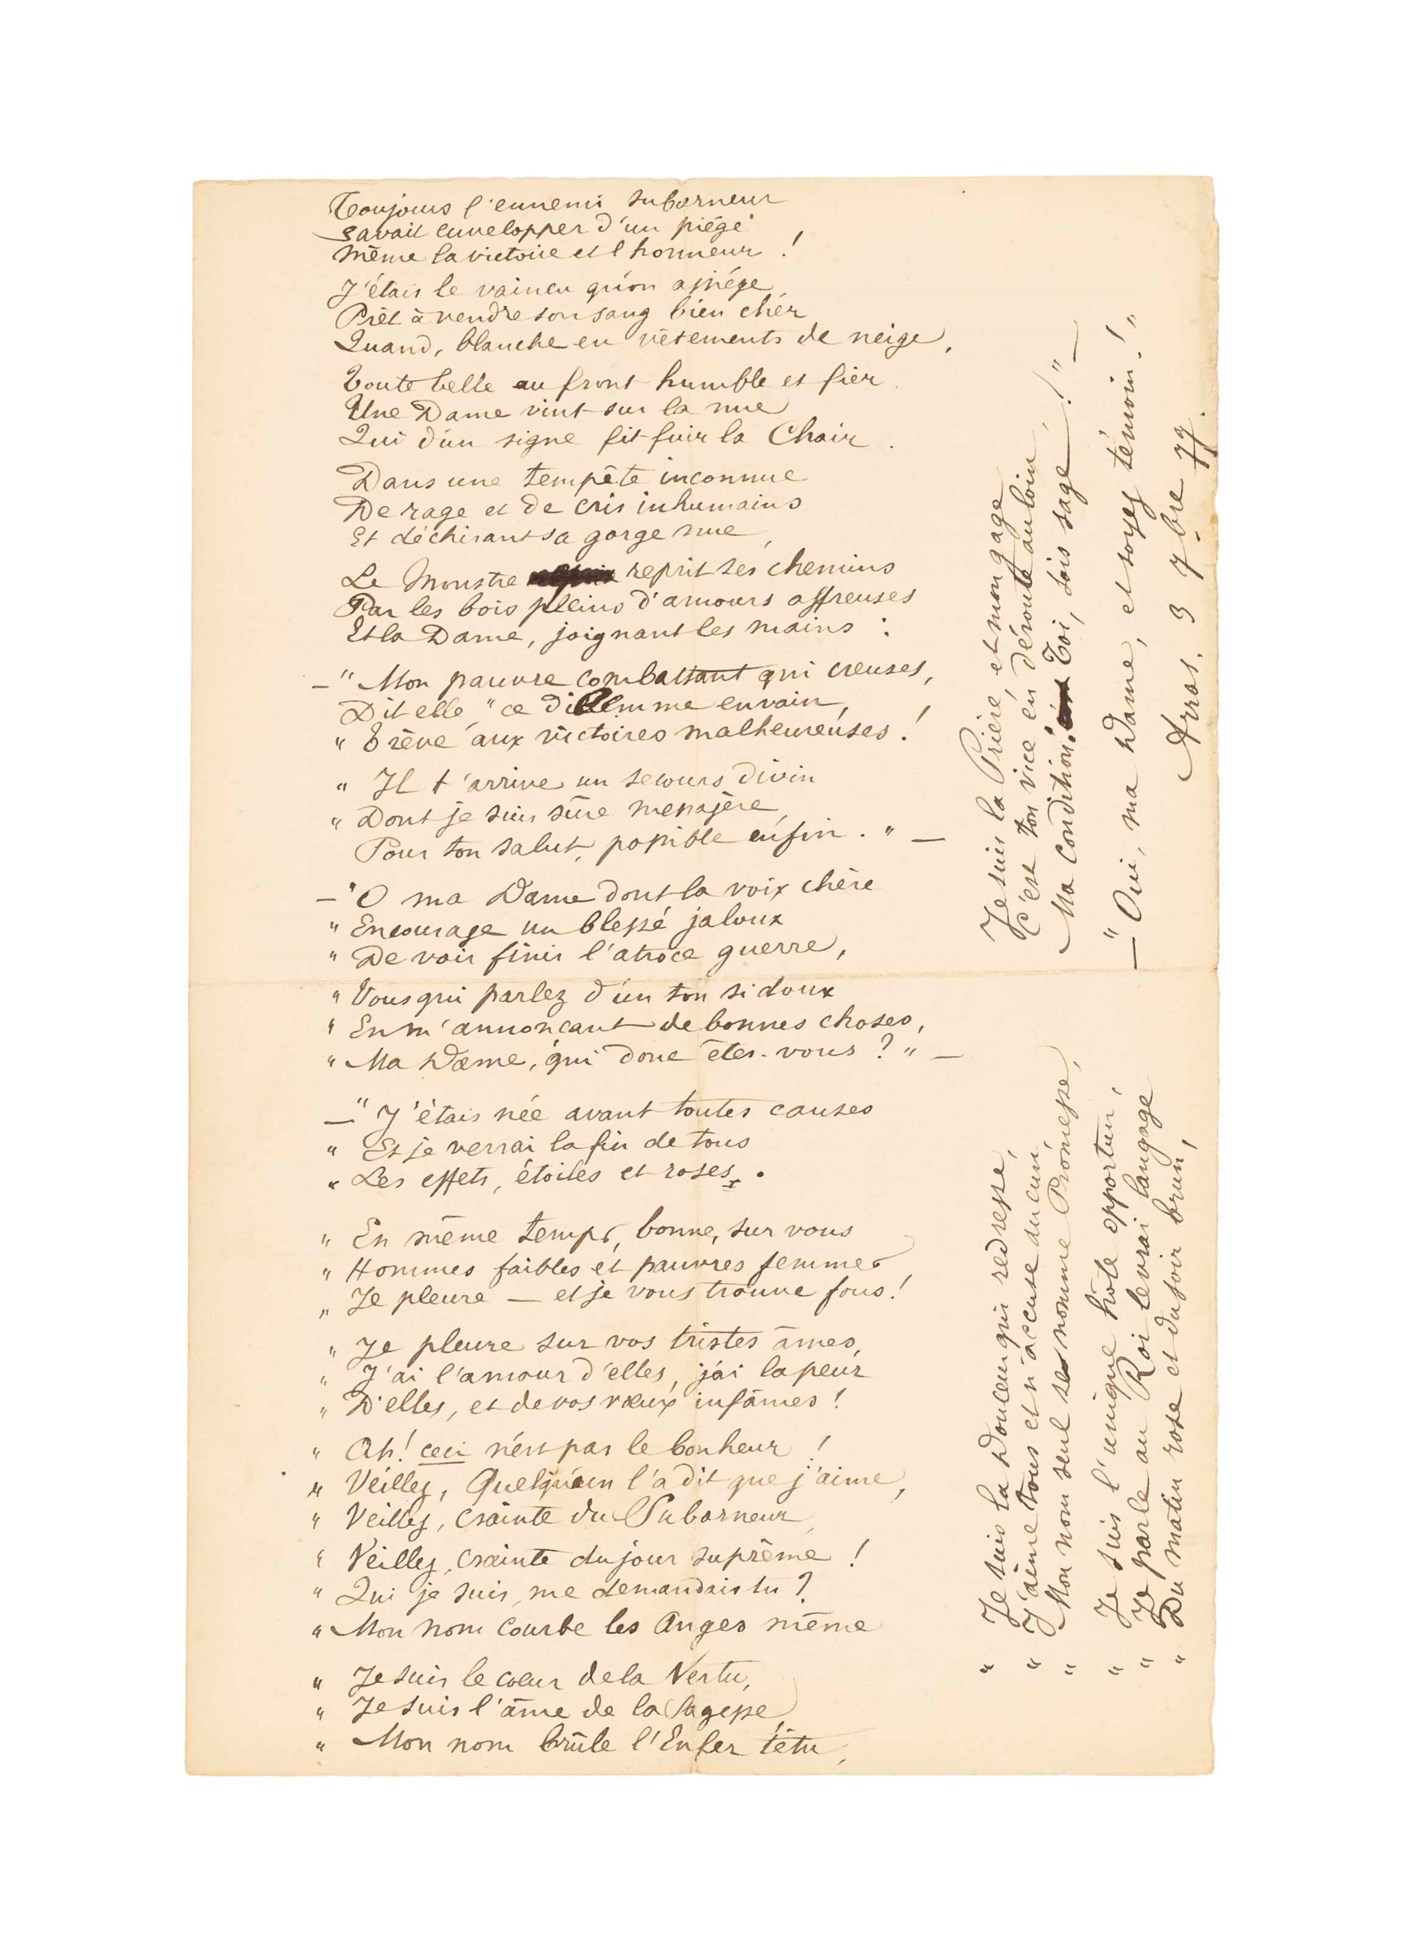 Toujours l'ennemi suborneur
Savait envelopper d'un piége
Même la victoire et l'honneur !
J'étais le vaincu qu'on assiége,
Prêt à vendre son sang bien cher
Quand, blanche en vêtements de neige,
Toute belle au front humble et fier
Une Dame vint sur la nue
Qui d'un signe fit fuir la Chair.
Dans une tempête inconnue
De rage et de cris inhumains
Et déchirant sa gorge nue,
Le Monstre reprit ses chemins
Par les bois pleins d'amours affreuses
Et la Dame, joignant les mains :
— " Mon pauvre combattant qui creuses,
Dit elle, " ce dilemme en vain,
" Trêve aux victoires malheureuses !
" Il t'arrive un secours divin
" Dont je suis sûre messagère,
Pour ton salut, possible enfin. " —
— " O ma Dame dont la voix chère
" Encourage un blessé jaloux
" De voir finir l'atroce guerre,
" Vous qui parlez d'un ton si doux
" En m'annonçant de bonnes choses,
" Ma Dame, qui donc êtes-vous ? " —
— " J'étais née avant toutes causes
" Et je verrai la fin de tous
" Les effets, étoiles et roses.
" En même temps, bonne, sur vous
" Hommes faibles et pauvres femmes
" Je pleure — et je vous trouve fous !
" Je pleure sur vos tristes âmes,
" J'ai l'amour d'elles, j'ai la peur
" D'elles, et de vos vœux infâmes !
" Ah ! ceci n'est pas le bonheur !
" Veillez, Quelqu'un l'a dit que j'aime,
" Veillez, crainte du Suborneur,
" Veillez, crainte du jour suprême !
" Qui je suis, me demandais tu ?
" Mon nom courbe les Anges même
" Je suis le cœur de la Vertu,
" Je suis l'âme de la Sagesse,
" Mon nom brûle l'Enfer têtu,
" Je suis la Douceur qui redresse,
" J'aime tous et n'accuse aucun,
" Mon nom seul se nomme Promesse,
" Je suis l'unique hôte opportun,
" Je parle au Roi le vrai langage
" Du matin rose et du soir brun,
Je suis la Prière, et mon gage
C'est ton vice en déroute au loin,
Ma condition : Toi, sois sage ! " —
— " Oui, ma Dame, et soyez témoin ! "
Arras. 3 7bre 77.